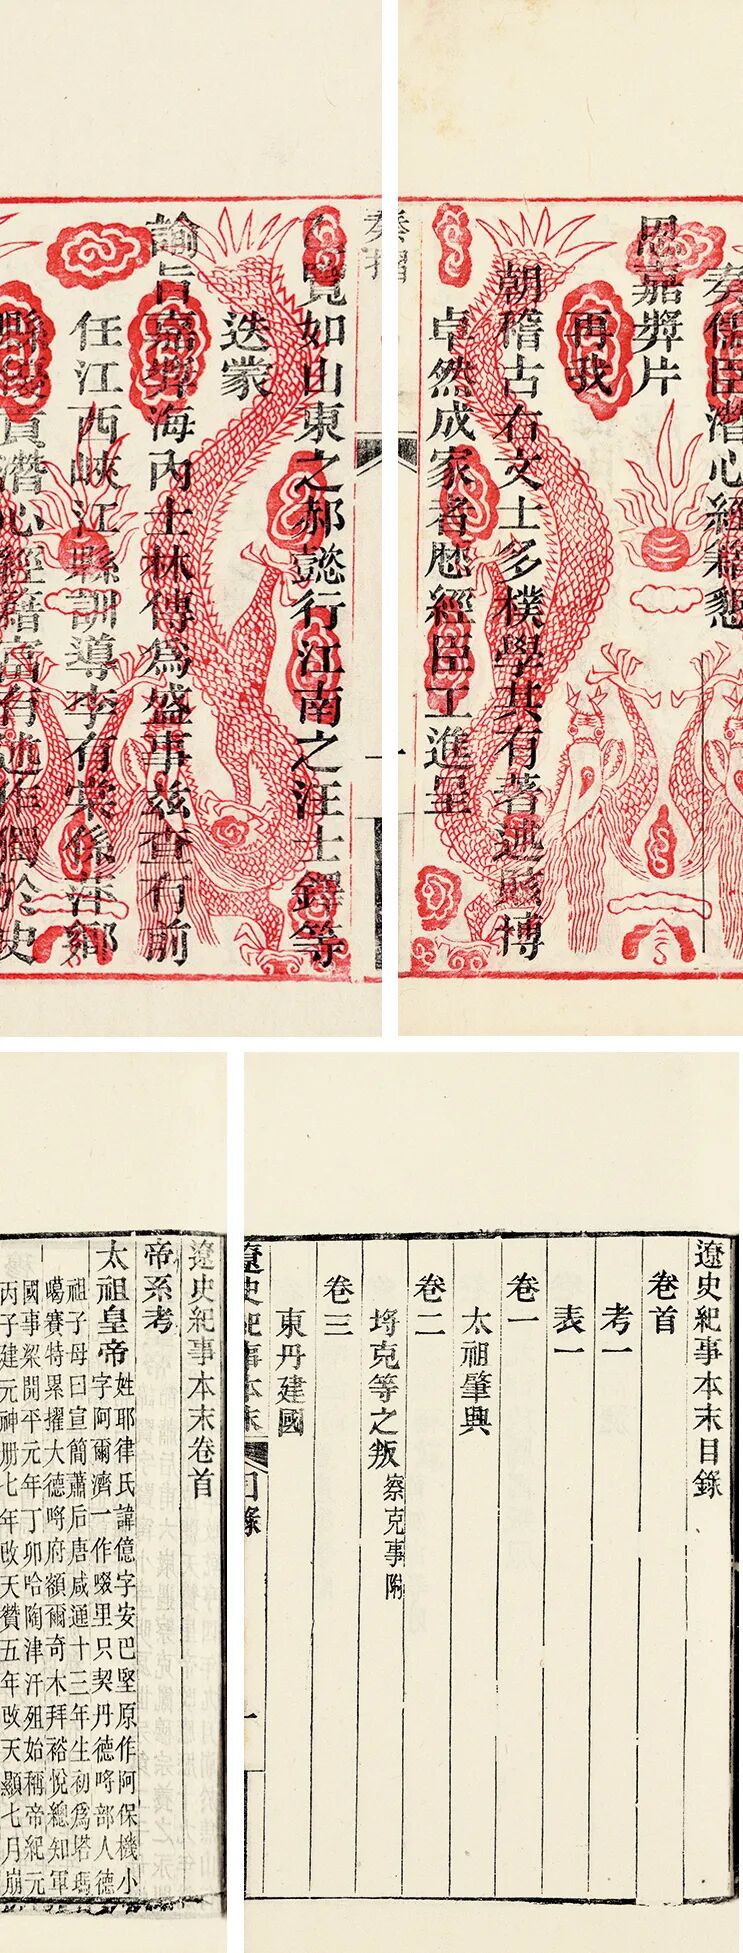 奏儒臣潛心經籍懇
恩嘉獎片
再我
朝稽古右文士多樸學共有著述賅博
卓然成家者歷經臣工進呈
奏摺
一
乙覽如山東之郝懿行江南之汪士鐸等
迭蒙
諭旨嘉獎海內士林傳爲盛事茲查有前
任江西峽江縣訓導李有棠係萍鄉
縣優貢潛心經籍富有述作獨於史
遼史紀事本末目錄
卷首
考一
表一
卷一
太祖肇興
卷二
埒克等之叛察克事附
卷三
東丹建國
遼史紀事本末 目錄
一
遼史紀事本末卷首
帝系考
太祖皇帝姓耶律氏諱億字安巴堅原作阿保機小
字阿爾濟一作啜里只契丹德哷部人德
祖子母曰宣簡蕭后唐咸通十三年生初爲塔瑪
噶賽特累擢大德哷府額爾奇木拜裕悅總知軍
國事梁開平元年丁卯哈陶津汗殂始稱帝紀元
丙子建元神册七年改天贊五年改天顯七月崩